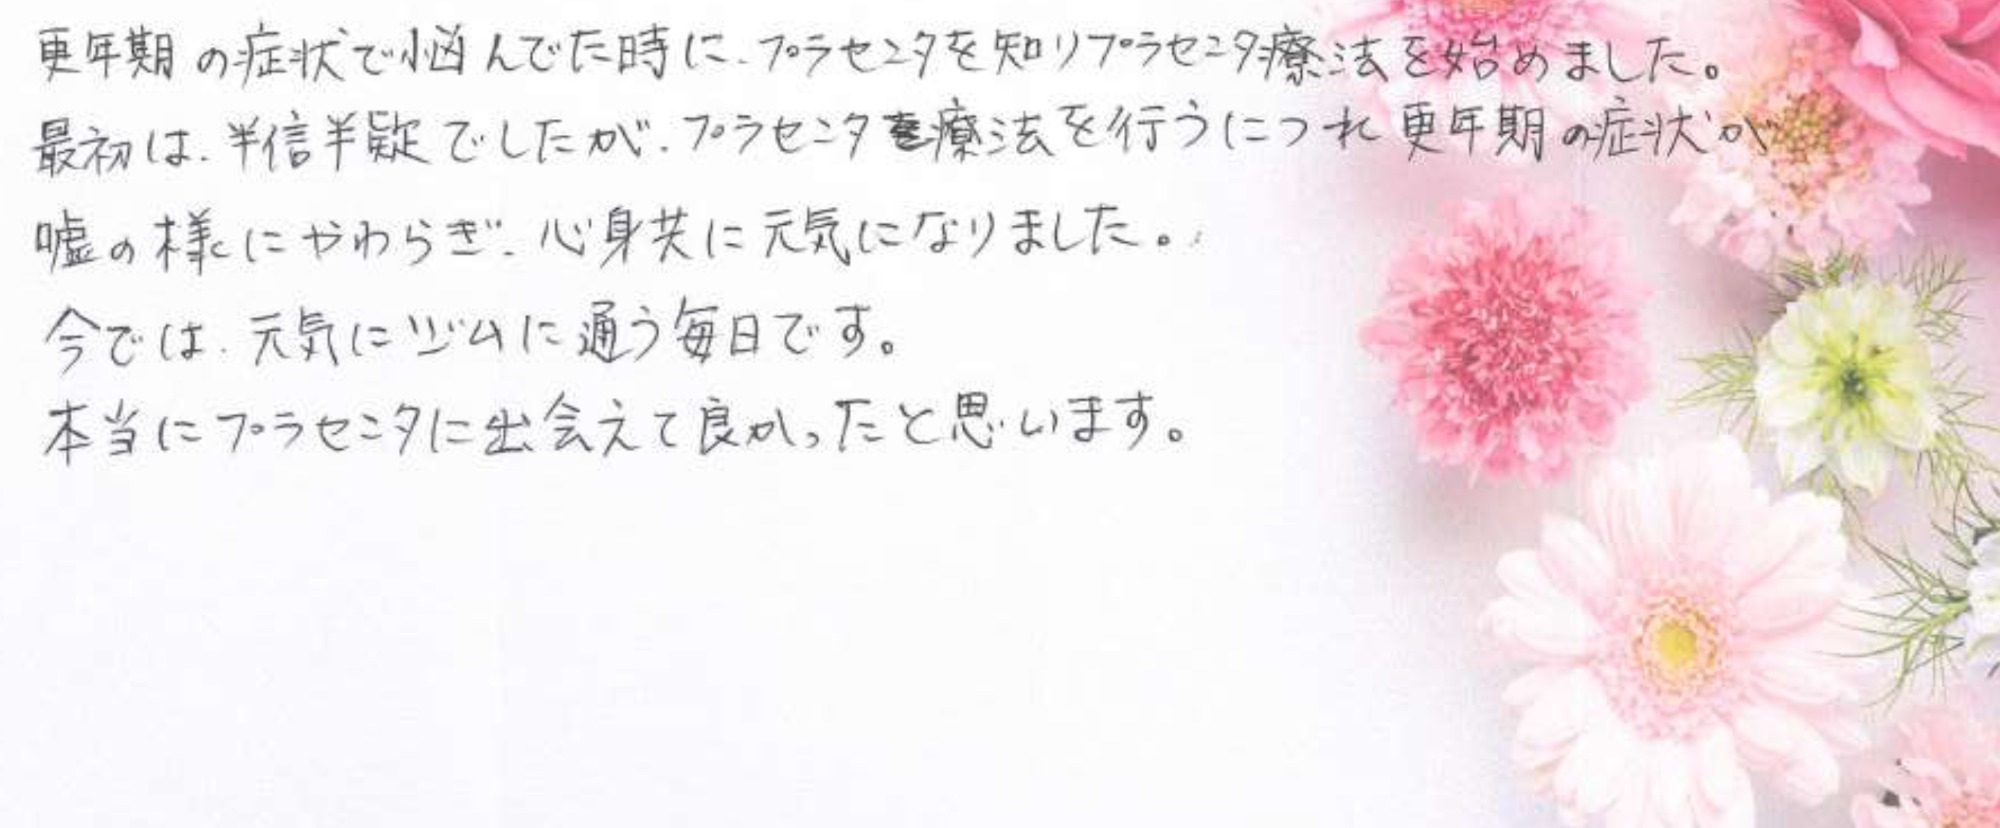 更年期の症状で悩んでた時に、プラセンタを知りプラセンタ療法を始めました。
最初は、半信半疑でしたが、プラセンタ療法を行うにつれ更年期の症状が
嘘の様にやわらぎ、心身共に元気になりました。
今では、元気にジムに通う毎日です。
本当にプラセンタに出会えて良かったと思います。